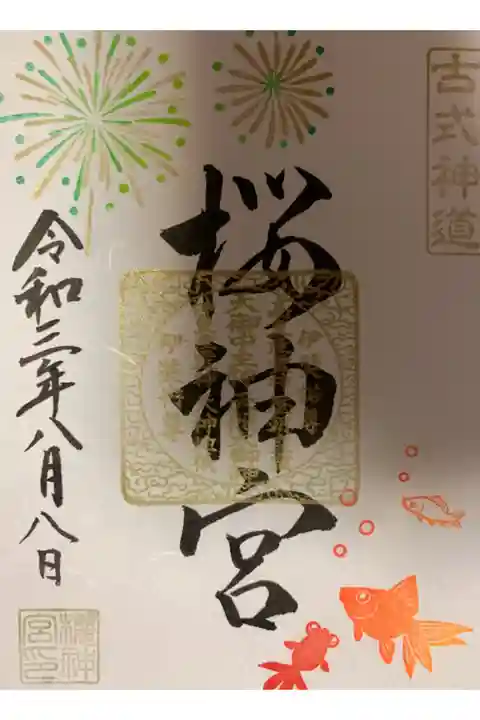 古式神道
桜神宮
令和三年八月八日
櫻神
宮印